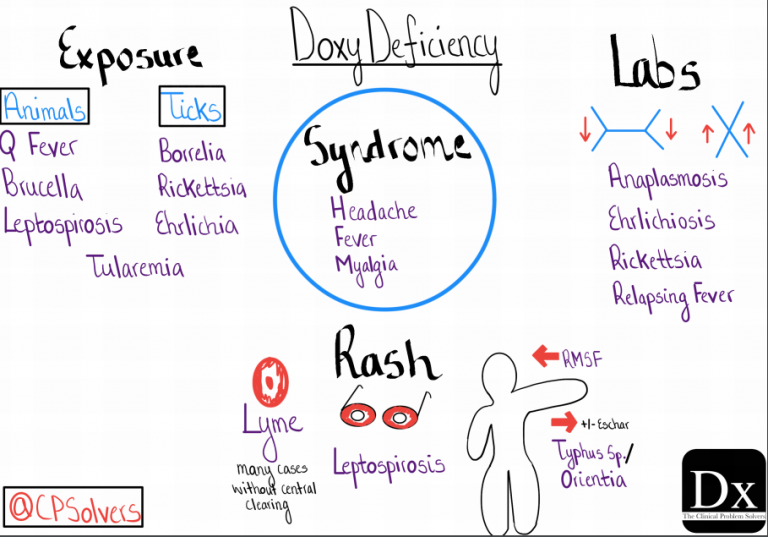 Doxy Deficiency
Exposure
Animals
Q Fever
Brucella
Leptospirosis
Ticks
Borrelia
Rickettsia
Ehrlichia
Tularemia
Syndrome
Headache
Fever
Myalgia
Labs
Anaplasmosis
Ehrlichiosis
Rickettsia
Relapsing Fever
Rash
Lyme
many cases
without central
clearing
Leptospirosis
RMSF
+/- Eschar
Typhus Sp./
Orientia
@CPSolvers
Dx
The Clinical Problem Solvers